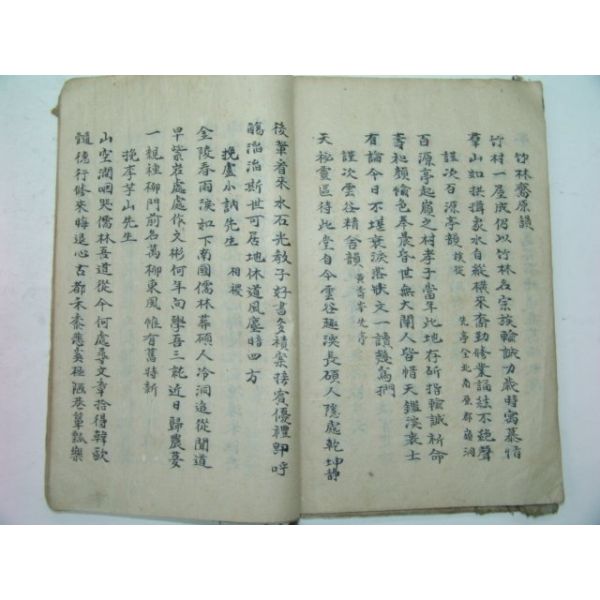 竹林齋原韻
竹村一屋成侶以竹林名宗族輸誠力歲時寓慕情
群山如拱揖衆水自縱橫來裔勤勝業誦絃不絶聲
謹次百源亭韻
百源亭起廟之村孝子當年此地存斫指輸誠新命
壽和顏愉色奉晨昏世無大闡人皆惜天鑑深衷士
有論今日不堪哀淚落狀文一讀幾駕捫
謹次雲谷精舍韻
天秘靈區待此堂自今雲谷趣深長碩人隱處乾坤靜
後輩看來水石光敎子好書多積案接賓優禮即呼
觴治治斯世可居地休道風塵暗四方
挽盧小訥先生 相稷
金陵春雨淚如下南國儒林幕碩人冷洞追從聞道
早紫岩處處作文彬何年向學吾三能近日歸農晏
一親種柳門前名萬柳東風惟有舊時新
挽李芋山先生
山空澗咽哭儒林吾道從今何處尋文章拾得韓歐
髓德行修來晦退心古都禾黍悲夷極陋巷簞瓢樂